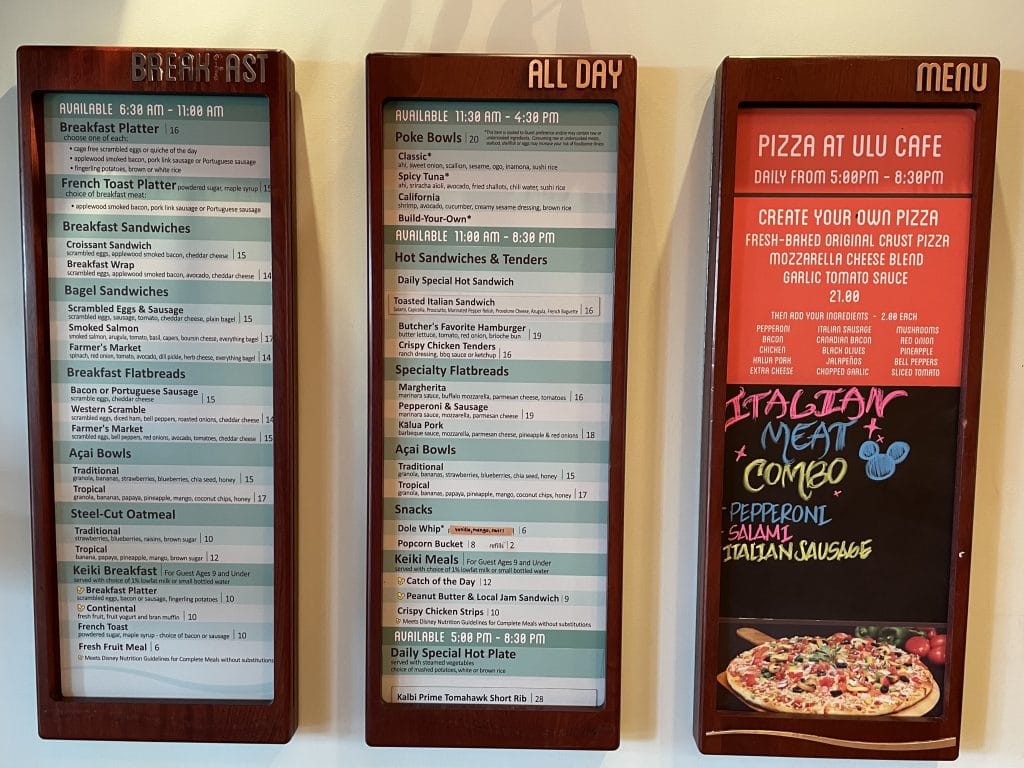 BREAKFAST
AVAILABLE 6:30 AM - 11:00 AM
Breakfast Platter | 16
choose one of each:
• cage free scrambled eggs or quiche of the day
• applewood smoked bacon, pork link sausage or Portuguese sausage
• fingerling potatoes, brown or white rice
French Toast Platter powdered sugar, maple syrup | 15
choice of breakfast meat:
• applewood smoked bacon, pork link sausage or Portuguese sausage
Breakfast Sandwiches
Croissant Sandwich
scrambled eggs, applewood smoked bacon, cheddar cheese | 15
Breakfast Wrap
scrambled eggs, applewood smoked bacon, avocado, cheddar cheese | 14
Bagel Sandwiches
Scrambled Eggs & Sausage
scrambled eggs, sausage, tomato, cheddar cheese, plain bagel | 15
Smoked Salmon
smoked salmon, arugula, tomato, basil, capers, boursin cheese, everything bagel | 17
Farmer's Market
spinach, red onion, tomato, avocado, dill pickle, herb cheese, everything bagel | 14
Breakfast Flatbreads
Bacon or Portuguese Sausage
scramble eggs, cheddar cheese | 15
Western Scramble
scrambled eggs, diced ham, bell peppers, roasted onions, cheddar cheese | 14
Farmer's Market
scrambled eggs, bell peppers, red onions, avocado, tomatoes, cheddar cheese | 15
Açai Bowls
Traditional
granola, bananas, strawberries, blueberries, chia seed, honey | 15
Tropical
granola, bananas, papaya, pineapple, mango, coconut chips, honey | 17
Steel-Cut Oatmeal
Traditional
strawberries, blueberries, raisins, brown sugar | 10
Tropical
banana, papaya, pineapple, mango, brown sugar | 12
Keiki Breakfast | For Guest Ages 9 and Under
served with choice of 1% lowfat milk or small bottled water
Breakfast Platter
scrambled eggs, bacon or sausage, fingerling potatoes | 10
Continental
fresh fruit, fruit yogurt and bran muffin | 10
French Toast
powdered sugar, maple syrup - choice of bacon or sausage | 10
Fresh Fruit Meal | 6
Meets Disney Nutrition Guidelines for Complete Meals without substitutions
ALL DAY
AVAILABLE 11:30 AM - 4:30 PM
Poke Bowls | 20
*This item is cooked to Guest preference and/or may contain raw or
undercooked ingredients. Consuming raw or undercooked meats,
seafood, shellfish or eggs may increase your risk of foodborne illness
Classic*
ahi, sweet onion, scallion, sesame, ogo, inamona, sushi rice
Spicy Tuna*
ahi, sriracha aioli, avocado, fried shallots, chili water, sushi rice
California
shrimp, avocado, cucumber, creamy sesame dressing, brown rice
Build-Your-Own*
AVAILABLE 11:00 AM - 8:30 PM
Hot Sandwiches & Tenders
Daily Special Hot Sandwich
Toasted Italian Sandwich
Salami, Capicolla, Prosciutto, Marinated Pepper Relish, Provolone Cheese, Arugula, French Baguette | 16
Butcher's Favorite Hamburger
butter lettuce, tomato, red onion, brioche bun | 19
Crispy Chicken Tenders
ranch dressing, bbq sauce or ketchup | 16
Specialty Flatbreads
Margherita
marinara sauce, buffalo mozzarella, parmesan cheese, tomatoes | 16
Pepperoni & Sausage
marinara sauce, mozzarella, parmesan cheese | 19
Kālua Pork
barbeque sauce, mozzarella, parmesan cheese, pineapple & red onions | 18
Açai Bowls
Traditional
granola, bananas, strawberries, blueberries, chia seed, honey | 15
Tropical
granola, bananas, papaya, pineapple, mango, coconut chips, honey | 17
Snacks
Dole Whip* | vanilla, mango, swirl | 6
Popcorn Bucket | 8 refills | 2
Keiki Meals | For Guest Ages 9 and Under
served with choice of 1% lowfat milk or small bottled water
Catch of the Day | 12
Peanut Butter & Local Jam Sandwich | 9
Crispy Chicken Strips | 10
Meets Disney Nutrition Guidelines for Complete Meals without substitutions
AVAILABLE 5:00 PM - 8:30 PM
Daily Special Hot Plate
served with steamed vegetables
choice of mashed potatoes, white or brown rice
Kalbi Prime Tomahawk Short Rib | 28
MENU
PIZZA AT ULU CAFE
DAILY FROM 5:00PM - 8:30PM
CREATE YOUR OWN PIZZA
FRESH-BAKED ORIGINAL CRUST PIZZA
MOZZARELLA CHEESE BLEND
GARLIC TOMATO SAUCE
21.00
THEN ADD YOUR INGREDIENTS - 2.00 EACH
PEPPERONI ITALIAN SAUSAGE MUSHROOMS
BACON CANADIAN BACON RED ONION
CHICKEN BLACK OLIVES PINEAPPLE
KALUA PORK JALAPEÑOS BELL PEPPERS
EXTRA CHEESE CHOPPED GARLIC SLICED TOMATO
ITALIAN
MEAT
COMBO
- PEPPERONI
- SALAMI
ITALIAN SAUSAGE